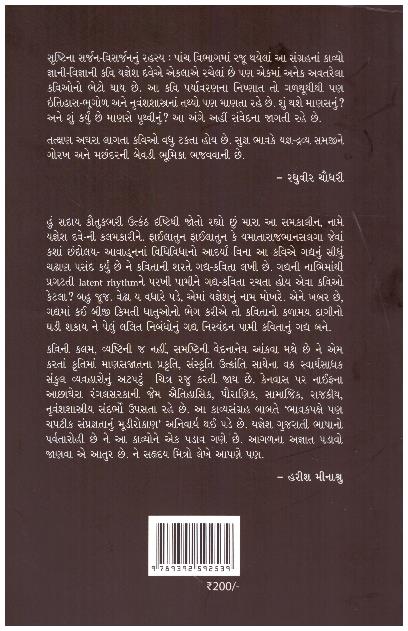 સૃષ્ટિના સર્જન-વિસર્જનનું રહસ્ય : પાંચ વિભાગમાં રજૂ થયેલાં આ સંગ્રહનાં કાવ્યો
જ્ઞાની-વિજ્ઞાની કવિ યજ્ઞેશ દવેએ એકલાએ રચેલાં છે પણ એકમાં અનેક અવતરેલા
કવિઓનો ભેટો થાય છે. આ કવિ પર્યાવરણના નિષ્ણાત તો ગળથૂથીથી પણ
ઇતિહાસ-ભૂગોળ અને નૃવંશશાસ્ત્રનાં તથ્યો પણ માણતા રહે છે. શું થશે માણસનું?
અને શું કર્યું છે માણસે પૃથ્વીનું? આ અંગે અહીં સંવેદના જાગતી રહે છે.
તત્ક્ષણ અઘરા લાગતા કવિઓ વધુ ટકતા હોય છે. સુજ્ઞ ભાવકે યજ્ઞ-દ્રવ્ય સમજીને
ગોરખ અને મછંદરની બેવડી ભૂમિકા ભજવવાની છે.
– રઘુવીર ચૌધરી
હું સદાય કૌતુકભરી ઉત્કંઠ દૃષ્ટિથી જોતો રહ્યો છું મારા આ સમકાલીન, નામે
યજ્ઞેશ દવે-ની કલમકારીને. ફાઈલાતુન ફાઈલાતુન કે યમાતારાજભાનસલગા જેવાં
કશાં છંદોલય- આવાહનનાં વિધિવિધાનો આદર્યા વિના આ કવિએ ગદ્યનું સીધું
ચઢાણ પસંદ કર્યું છે ને કવિતાની શરતે ગદ્ય-કવિતા લખી છે. ગદ્યની નાભિમાંથી
પ્રગટતી latent rhythmને પરખી પામીને ગદ્ય-કવિતા રચતા હોય એવા કવિઓ
કેટલા? બહુ જૂજ. વેઢા ય વધારે પડે. એમાં યજ્ઞેશનું નામ મોખરે. એને ખબર છે,
ગદ્યમાં કઈ બીજી કિંમતી ધાતુઓનો ભેગ કરીએ તો કવિતાનો કળામય દાગીનો
ઘડી શકાય ને પેલું લલિત નિબંધોનું ગદ્ય નિસ્યંદન પામી કવિતાનું ગદ્ય બને.
કવિની કલમ, વ્યષ્ટિની જ નહીં, સમષ્ટિની વેદનાનેય આંકવા મથે છે ને એમ
કરતાં કૃતિમાં માણસજાતના પ્રકૃતિ, સંસ્કૃતિ ઉત્ક્રાંતિ સાથેના વક્ર સ્વાર્થસાધક
સંકુલ વ્યવહારોનું અટપટું ચિત્ર રજૂ કરતી જાય છે. કેનવાસ પર નાઈફના
આછાઘેરા રંગલસરકાની જેમ ઐતિહાસિક, પૌરાણિક, સામાજિક, રાજકીય,
નૃવંશશાસ્ત્રીય સંદર્ભો ઉપસતા રહે છે. આ કાવ્યસંગ્રહ બાબતે 'ભાવકપક્ષે પણ
ચપટીક સંપ્રજ્ઞતાનું મૂડીરોકાણ' અનિવાર્ય થઈ પડે છે. યજ્ઞેશ ગુજરાતી ભાષાનો
પર્વતારોહી છે ને આ કાવ્યોને એક પડાવ ગણે છે. આગળના અજ્ઞાત પડાવો
જાણવા એ આતુર છે. ને સહૃદય મિત્રો લેખે આપણે પણ.
– હરીશ મીનાશ્રુ
9 789392 592539
₹200/-